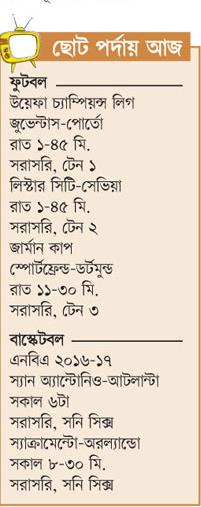 ছোট পর্দায় আজ
ফুটবল
উয়েফা চ্যাম্পিয়ন্স লিগ
জুভেন্টাস-পোর্তো
রাত ১-৪৫ মি.
সরাসরি, টেন ১
লিস্টার সিটি-সেভিয়া
রাত ১-৪৫ মি.
সরাসরি, টেন ২
জার্মান কাপ
স্পোর্টফ্রেন্ড-ডর্টমুন্ড
রাত ১১-৩০ মি.
সরাসরি, টেন ৩
বাস্কেটবল
এনবিএ ২০১৬-১৭
স্যান অ্যান্টোনিও-আটলান্টা
সকাল ৬টা
সরাসরি, সনি সিক্স
স্যাক্রামেন্টো-অরল্যান্ডো
সকাল ৮-৩০ মি.
সরাসরি, সনি সিক্স